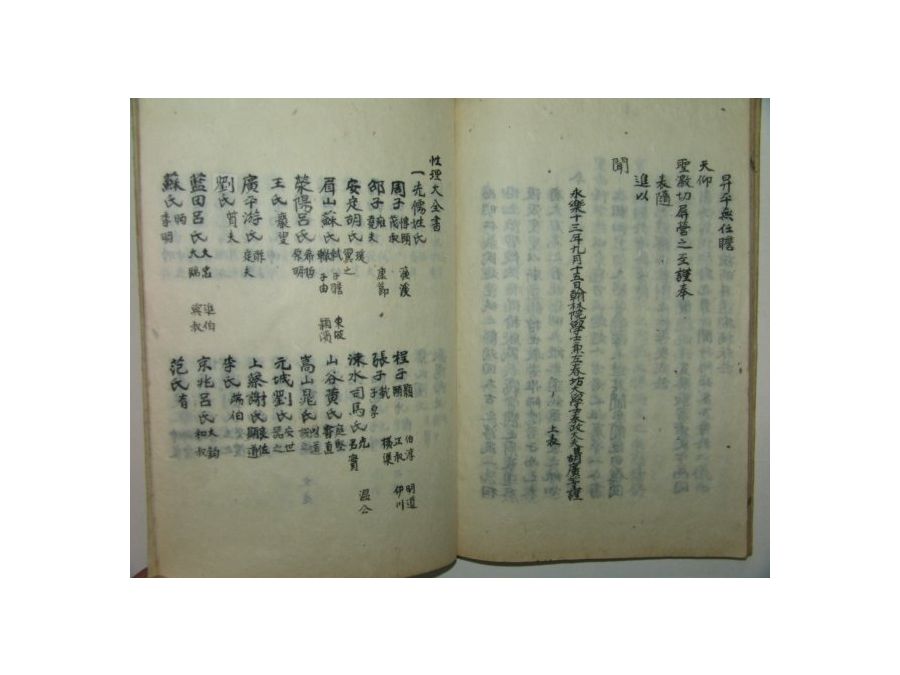 昇平無任瞻
天仰
聖激切屏營之至謹奉
表隨
進以
聞
永樂十三年九月十五日翰林院學士兼左春坊大學士奉政大夫臣胡廣等謹
上表
性理大全書
一先儒姓氏
周子 惇頤 茂叔 濂溪
程子 顥 伯淳 明道
頤 正叔 伊川
邵子 雍 堯夫 康節
張子 載 子厚 橫渠
安定胡氏 瑗 翼之
涑水司馬氏 光 君實 溫公
眉山蘇氏 軾 子瞻 東坡
轍 子由 潁濱
山谷黃氏 庭堅 魯直
滎陽呂氏 希哲 原明
嵩山晁氏 說之 以道
王氏 巖叟
元城劉氏 安世 器之
廣平游氏 酢 定夫
上蔡謝氏 良佐 顯道
劉氏 質夫
李氏 端伯
藍田呂氏 大忠 進伯
大臨 與叔
京兆呂氏 大鈞 和叔
蘇氏 昞 季明
范氏 育